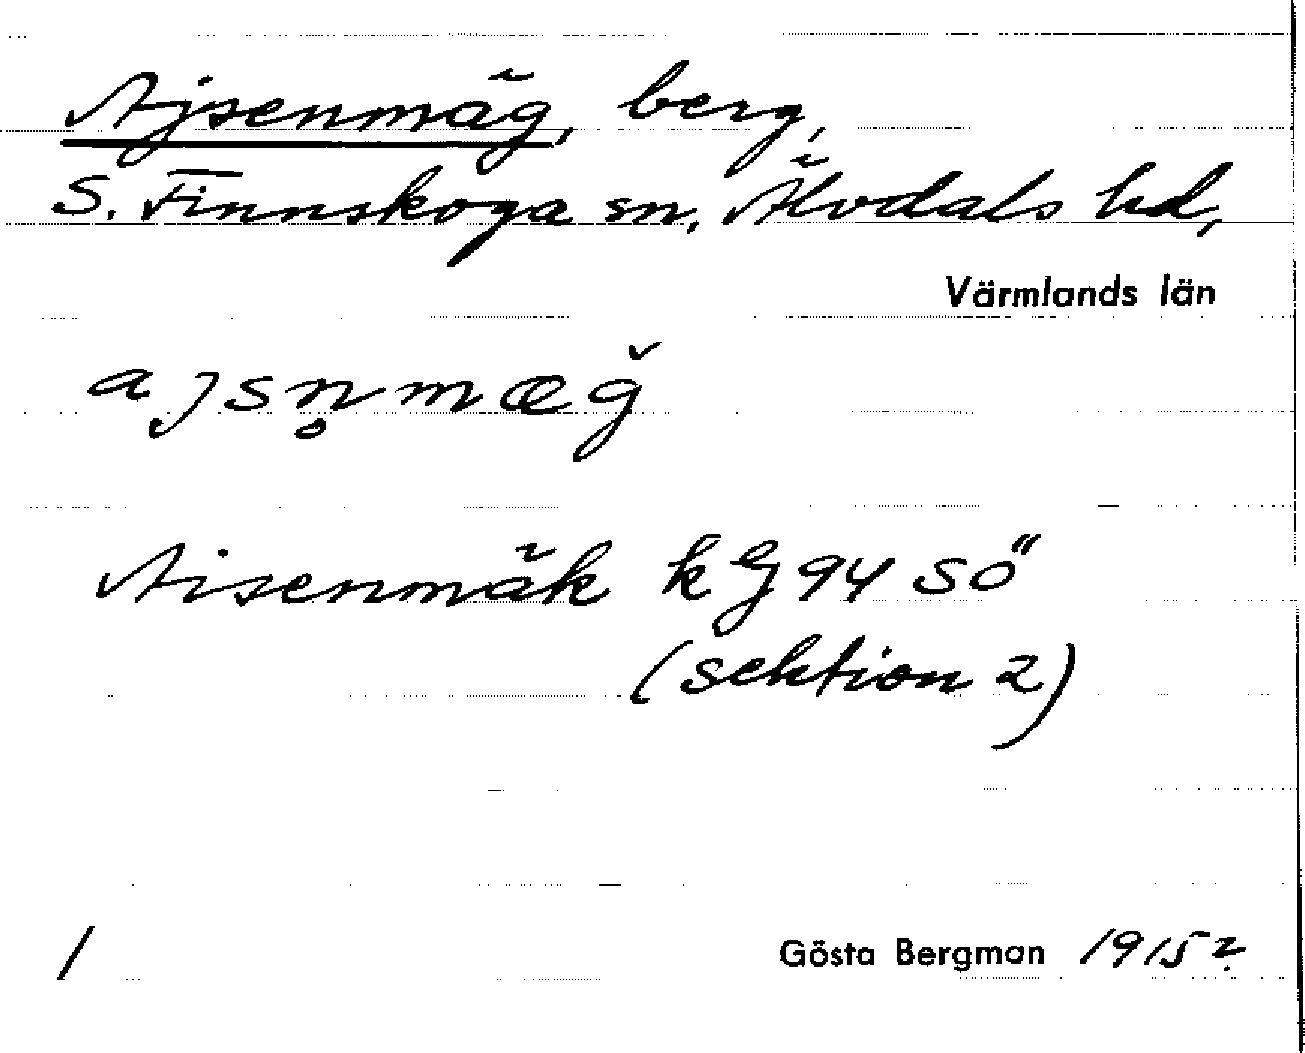 Ajsenmäg, berg,
S. Finnskoga sn, Älvdals hd,
Värmlands län
ajsn̥mæǧ
Aisenmäk kG 94 SÖ
(sektion 2)
/ Gösta Bergman 1915?